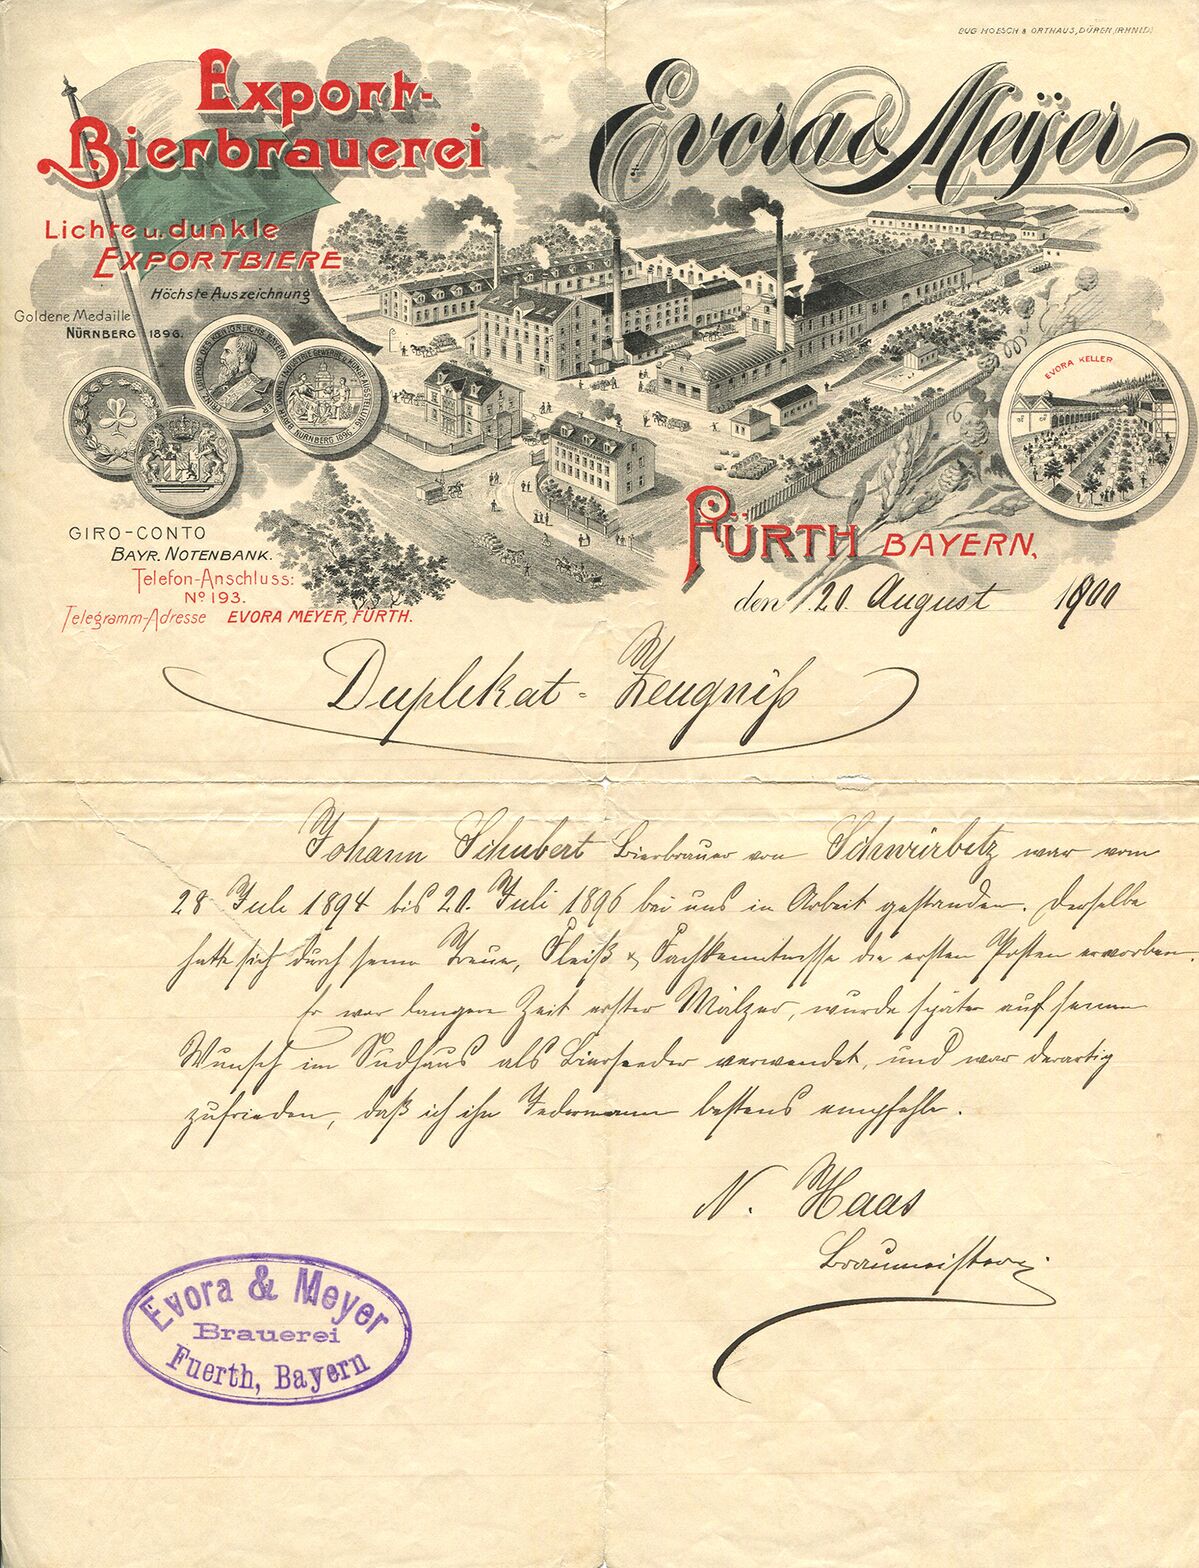 BUG HOESCH & ORTHAUS, DÜREN, (RHNLD)
Export-
Bierbrauerei
Evora & Meÿer
Lichte u. dunkle
EXPORTBIERE
Höchste Auszeichnung
Goldene Medaille
NÜRNBERG 1896.
EVORA KELLER
GIRO-CONTO
BAYR. NOTENBANK.
Telefon-Anschluss:
No 193.
Telegramm-Adresse EVORA MEYER, FÜRTH.
FÜRTH BAYERN,
den 20. August 1900
Duplikat-Zeugniß
Johann Schubert Bierbrauer von Schwürbitz war vom
28 Juli 1894 bis 20. Juli 1896 bei uns in Arbeit gestanden. Derselbe
hatte sich durch seine Treue, Fleiß & Fachkenntnisse die ersten Posten erworben.
Er war längere Zeit erster Mälzer, wurde später auf seinen
Wunsch im Sudhaus als Biersieder verwendet, und war derartig
zufrieden, daß ich ihn Jedermann bestens empfehle.
N. Haas
Braumeister
Evora & Meyer
Brauerei
Fuerth, Bayern